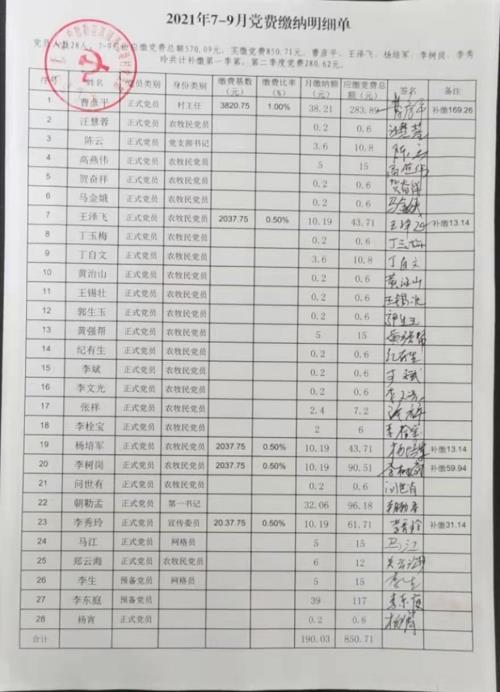 2021年7-9月党费缴纳明细单
党员人数28人，7-9月份应缴党费总额570.09元，实缴党费850.71元，曹彦平、王泽飞、杨培军、李树岗、李秀
玲共计补缴第一季第、第二季度党费280.62元。
序号 姓名 党员类别 身份类别 缴费基数（元） 缴费比率（%） 月缴纳额（元） 应缴党费总额（元） 签名 备注
1 曹彦平 正式党员 村主任 3820.75 1.00% 38.21 283.89 曹彦平 补缴169.26
2 汪慧蓉 正式党员 农牧民党员 0.2 0.6 汪慧蓉
3 陈云 正式党员 党支部书记 3.6 10.8 陈云
4 高燕伟 正式党员 农牧民党员 5 15 高燕伟
5 贺奋祥 正式党员 农牧民党员 0.2 0.6 贺奋祥
6 马金娥 正式党员 农牧民党员 0.2 0.6 马金娥
7 王泽飞 正式党员 农牧民党员 2037.75 0.50% 10.19 43.71 王泽飞 补缴13.14
8 丁玉梅 正式党员 农牧民党员 0.2 0.6 丁玉梅
9 丁自文 正式党员 农牧民党员 3.6 10.8 丁自文
10 黄治山 正式党员 农牧民党员 0.2 0.6 黄治山
11 王锡壮 正式党员 农牧民党员 0.2 0.6
12 郭生玉 正式党员 农牧民党员 0.2 0.6 郭生玉
13 黄强帮 正式党员 农牧民党员 5 15
14 纪有生 正式党员 农牧民党员 0.2 0.6 纪有生
15 李斌 正式党员 农牧民党员 0.2 0.6
16 李文光 正式党员 农牧民党员 0.2 0.6
17 张祥 正式党员 农牧民党员 2.4 7.2
18 李栓宝 正式党员 农牧民党员 2 6
19 杨培军 正式党员 农牧民党员 2037.75 0.50% 10.19 43.71 杨培军 补缴13.14
20 李树岗 正式党员 农牧民党员 2037.75 0.50% 10.19 90.51 李树岗 补缴59.94
21 问世有 正式党员 农牧民党员 0.2 0.6 问世有
22 朝勒孟 正式党员 第一书记 32.06 96.18
23 李秀玲 正式党员 宣传委员 2037.75 0.50% 10.19 61.71 李秀玲 补缴31.14
24 马江 正式党员 网格员 5 15 马江
25 郑云海 正式党员 农牧民党员 6 12
26 李生 预备党员 网格员 5 15 李生
27 李东庭 预备党员 39 117 李东庭
28 杨宵 正式党员 0.2 0.6
合计 190.03 850.71